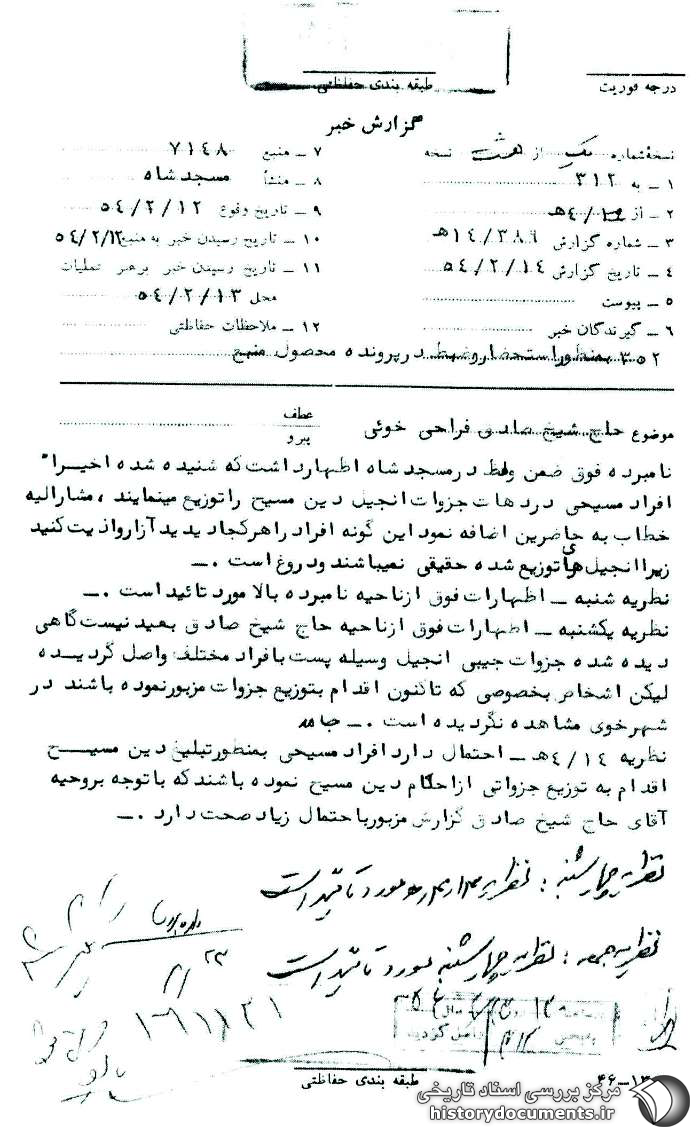 طبقه بندی حفاظتی
درجه فوریت
گزارش خبر
نسخهٔ شماره یک از هشت نسخه
۱ ـ به ۳۱۲
۲ ـ از ۴/۱۴هـ
۳ ـ شماره گزارش ۱۴/۳۸۹هـ
۴ ـ تاریخ گزارش ۵۴/۲/۱۴
۵ ـ پیوست
۶ ـ گیرندگان خبر
۷ ـ منبع ۷۱۴۸
۸ ـ منشأ مسجد شاه
۹ ـ تاریخ وقوع ۵۴/۲/۱۲
۱۰ ـ تاریخ رسیدن خبر به منبع ۵۴/۲/۱۲
۱۱ ـ تاریخ رسیدن خبر برهبر عملیات
محل ۵۴/۲/۱۳
۱۲ ـ ملاحظات حفاظتی
۳۵۲ بمنظور استحضار وضبط در پرونده محصول منبع
موضوع حاج شیخ صادق فراحی خوئی
عطف
پیرو
نامبرده فوق ضمن وعظ در مسجد شاه اظهارداشت که شنیده شده اخیرا"
افراد مسیحی در دهات جزوات انجیل دین مسیح را توزیع مینمایند ، مشارالیه
خطاب به حاضرین اضافه نمود این گونه افراد را هر کجا دیدید آزار و اذیت کنید
زیرا انجیل های توزیع شده حقیقی نمیباشند و دروغ است .ـ
نظریه شنبه ـ اظهارات فوق از ناحیه نامبرده بالا مورد تائید است .ـ
نظریه یکشنبه ـ اظهارات فوق از ناحیه حاج شیخ صادق بعید نیست گاهی
دیده شده جزوات جیبی انجیل وسیله پست بافراد مختلف واصل گردیده
لیکن اشخاص بخصوصی که تاکنون اقدام بتوزیع جزوات مزبور نموده باشند در
شهر خوی مشاهده نگردیده است .ـ جامد
نظریه ۴/۱۴هـ ـ احتمال دارد افراد مسیحی بمنظور تبلیغ دین مسیح
اقدام به توزیع جزواتی از احکام دین مسیح نموده باشند که با توجه بروحیه
آقای حاج شیخ صادق گزارش مزبور باحتمال زیاد صحت دارد .ـ
نظریه چهارشنبه : نظریه مورد تائید است
نظریه جمعه : نظریه چهارشنبه مورد تائید است
طبقه بندی حفاظتی
۴۶ـ۱۳
مرکز بررسی اسناد تاریخی
historydocuments.ir